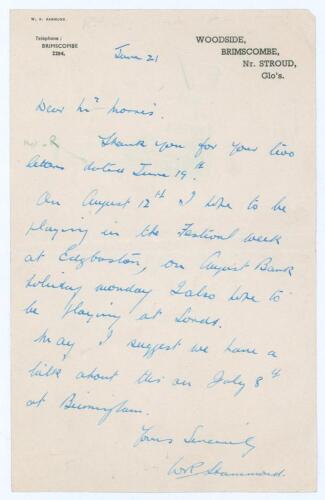 W. R. HAMMOND.
Telephone :
BRIMSCOMBE
2284.
WOODSIDE,
BRIMSCOMBE,
Nr. STROUD,
Glo's.
June 21
Dear Mr Morris.
Thank you for your two
letters dated June 19th.
On August 12th I hope to be
playing in the Festival week
at Edgbaston, on August Bank
holiday monday I also hope to
be playing at Lords.
May I suggest we have a
talk about this on July 8th
at Birmingham.
Yours Sincerely
WR Hammond.